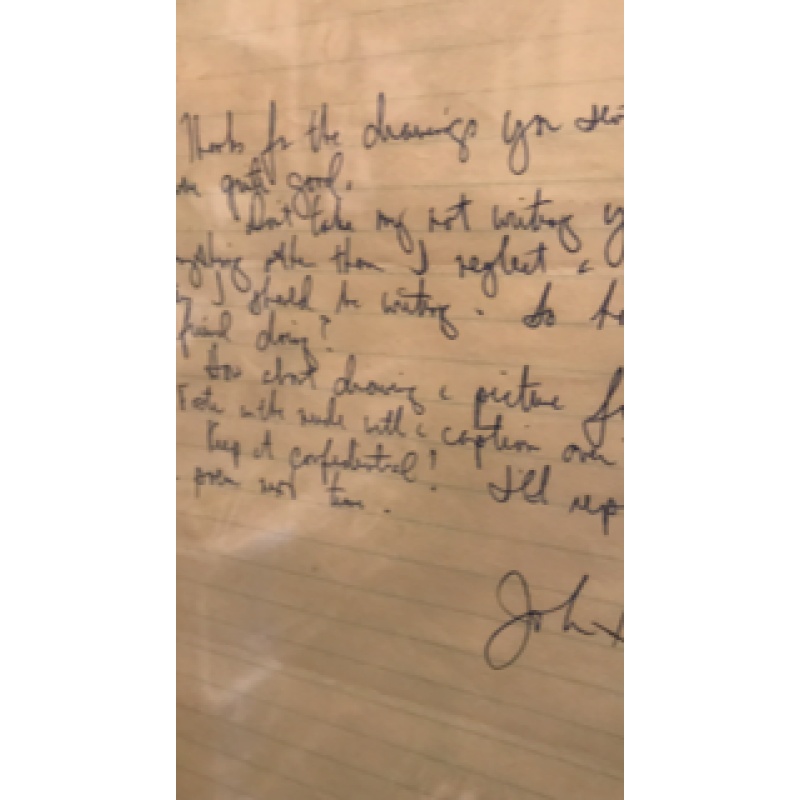 Thanks for the drawings you
quite good.
Don't take my not writing
other than I neglect a
I should be writing. So
friend doing?
How about drawing a picture
in the nude with a caption over
Keep it confidential! I'll
poem next time.
John